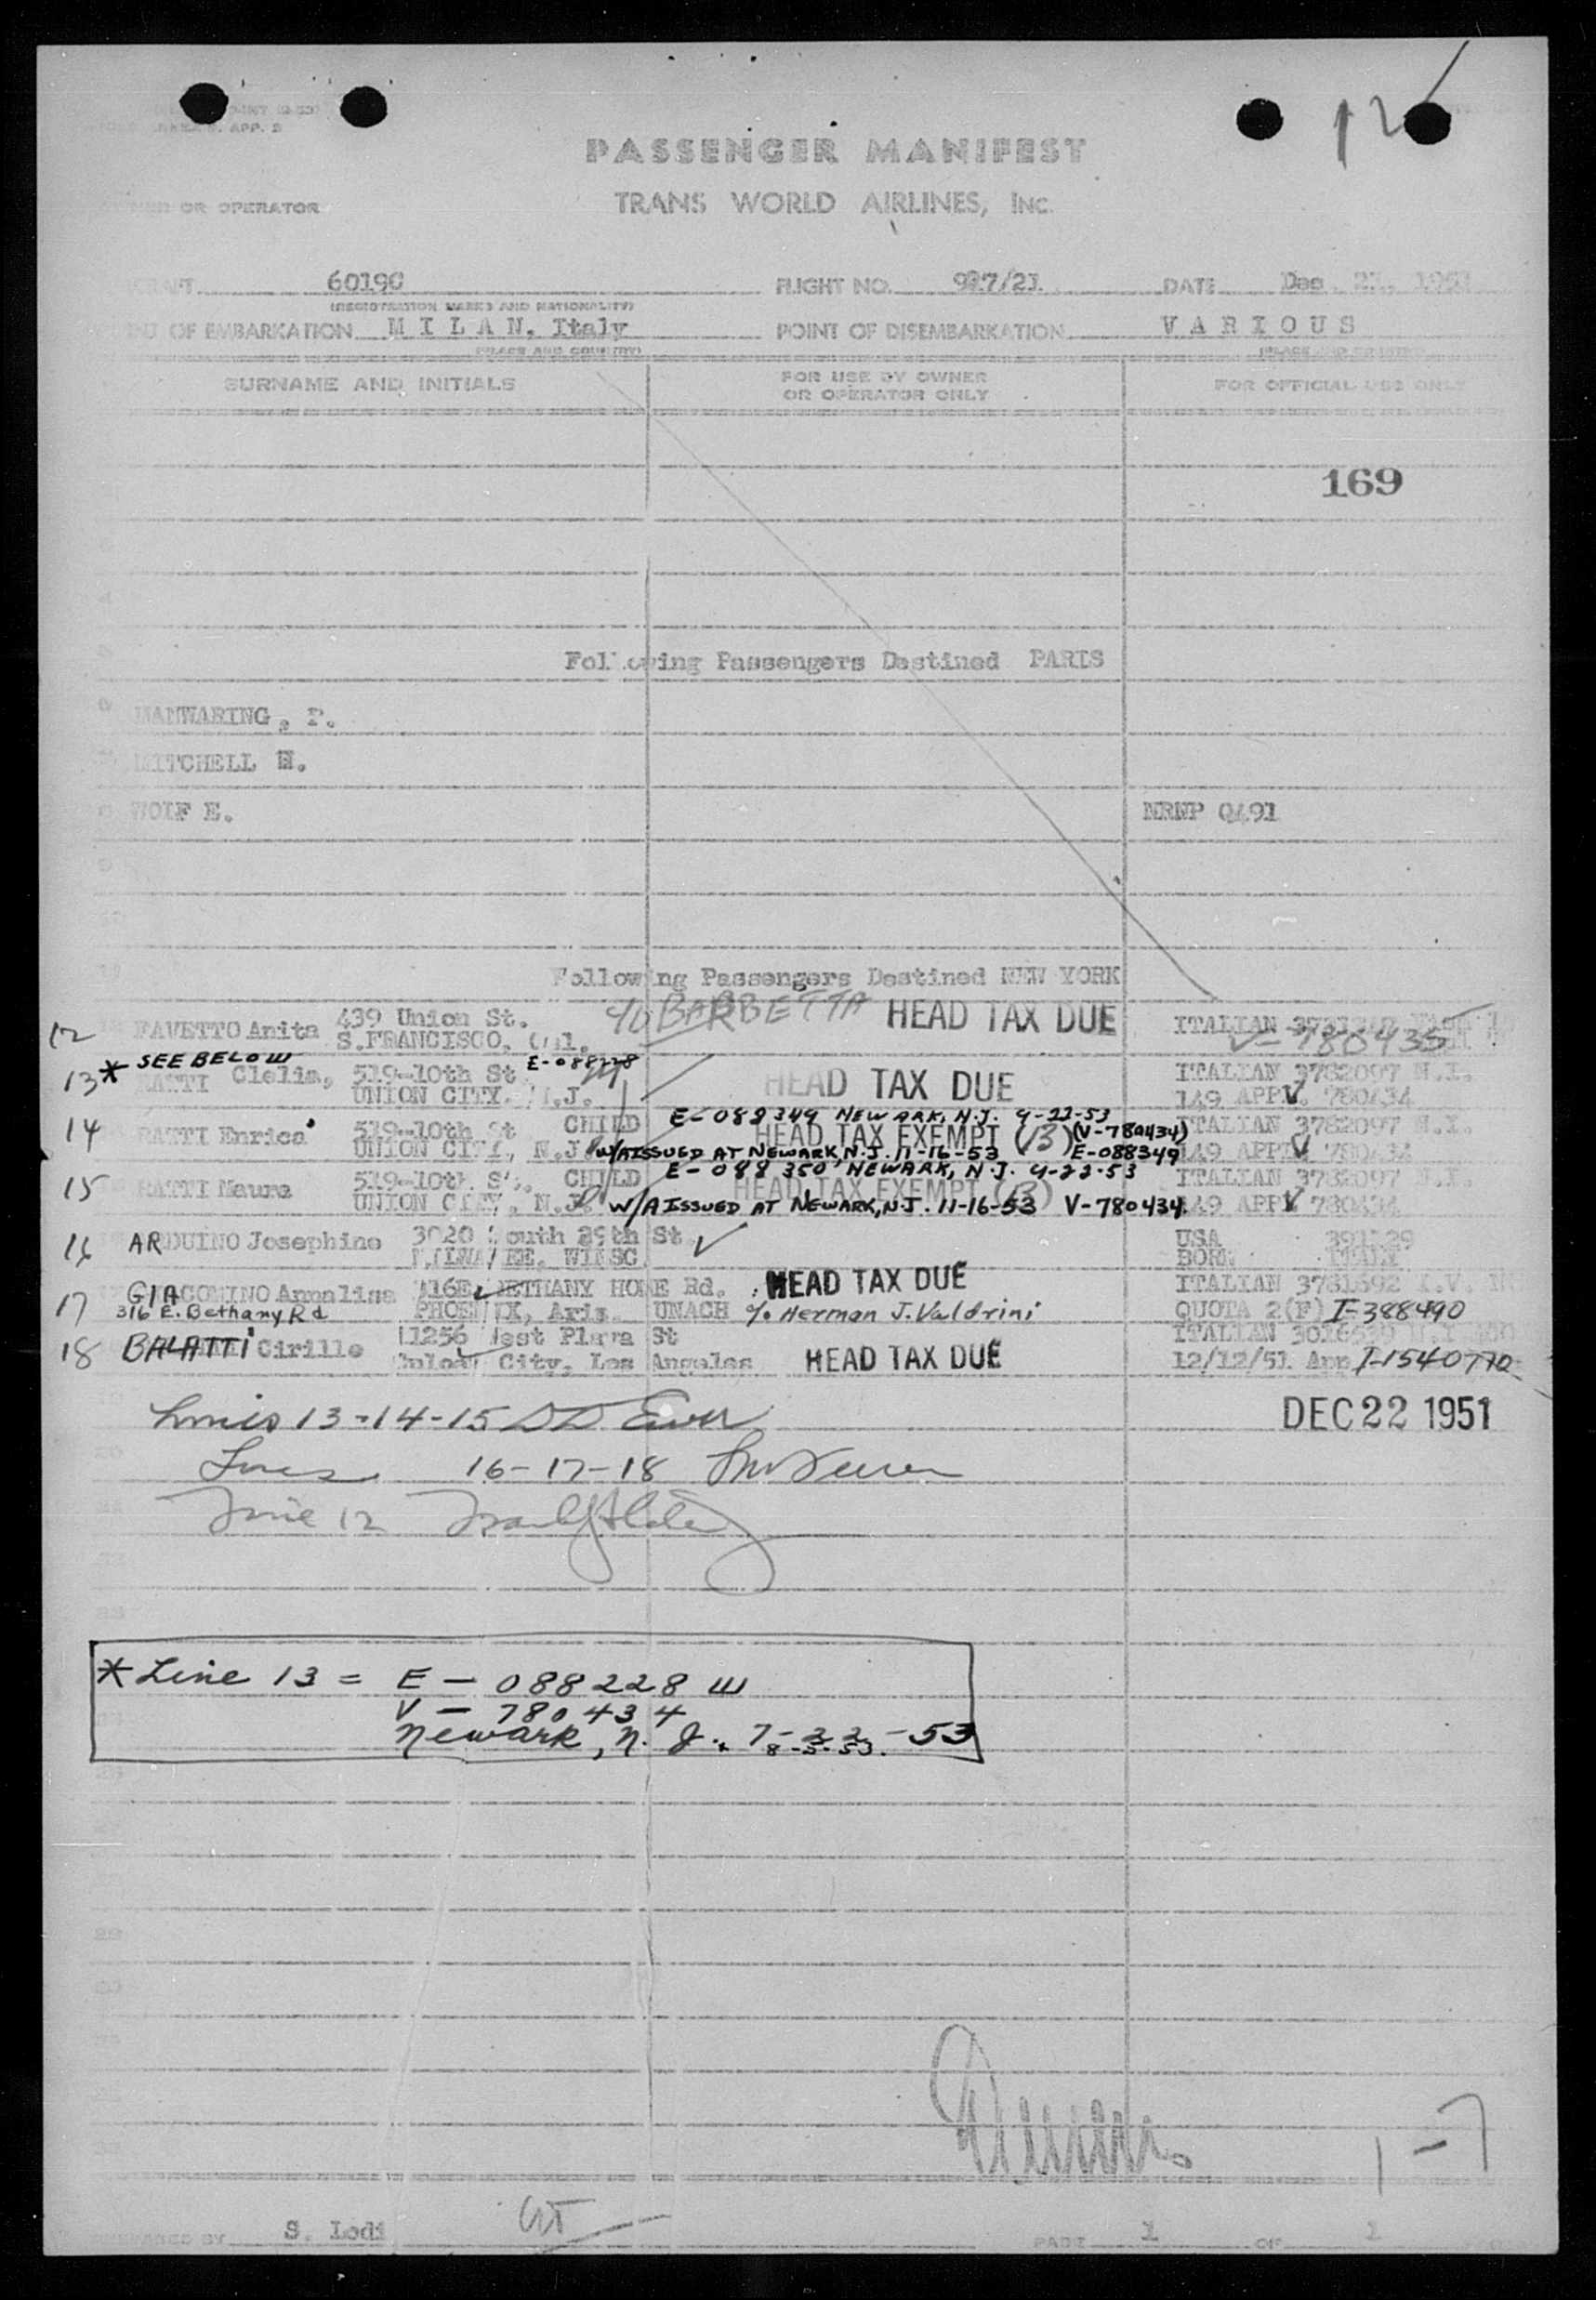 APP. 2
12
PASSENGER MANIFEST
OR OPERATOR
TRANS WORLD AIRLINES, INC.
60190
FLIGHT NO. 927/21
DATE Dec. 21, 1951
(REGISTRATION MARKS AND NATIONALITY)
OF EMBARKATION MILAN, Italy
POINT OF DISEMBARKATION VARIOUS
(PLACE AND COUNTRY)
SURNAME AND INITIALS
FOR USE BY OWNER
OR OPERATOR ONLY
FOR OFFICIAL USE ONLY
169
Following Passengers Destined PARIS
MANWARING, P.
MITCHELL H.
WOLF E.
NRNP Q491
Following Passengers Destined NEW YORK
12 FAVETTO Anita 439 Union St. c/o BARBETTA HEAD TAX DUE ITALIAN
S.FRANCISCO, Cal. V-780435
* SEE BELOW E-088228
13 RATTI Clelia, 519-10th St HEAD TAX DUE ITALIAN 3782097 N.I.
UNION CITY. N.J. 149 APP V 780434
E-088349 NEWARK, N.J. 9-22-53
14 RATTI Enrica 519-10th St CHILD HEAD TAX EXEMPT (B) (V-780434) ITALIAN 3782097 N.I.
UNION CITY, N.J. W/A ISSUED AT NEWARK, N.J. 11-16-53 E-088349 149 APP V 780434
E-088350 NEWARK, N.J. 9-22-53
15 RATTI Maura 519-10th St. CHILD HEAD TAX EXEMPT (B) ITALIAN 3782097 N.I.
UNION CITY, N.J. W/A ISSUED AT NEWARK, N.J. 11-16-53 V-780434 149 APP V 780434
16 ARDUINO Josephine 3020 South 29th St USA
MILWAUKEE, WINSC. BORN ITALY
17 GIACOMINO Annalisa 316E. BETHANY HOME Rd. HEAD TAX DUE ITALIAN 3781692 I.V.
316 E. Bethany Rd PHOENIX, Aris. UNACH c/o Herman J. Valdrini QUOTA 2(F) I-388490
18 BALATTI Cirillo 11256 West Plara St ITALIAN
City, Los Angeles HEAD TAX DUE 12/12/51 App I-1540770
Lines 13-14-15
DEC 22 1951
Lines 16-17-18
Line 12
* Line 13 = E - 088228 W
V - 780434
Newark, N. J. 7-22-53
8-5-53.
1-7
PREPARED BY S. Lodi
PAGE 1 OF 1